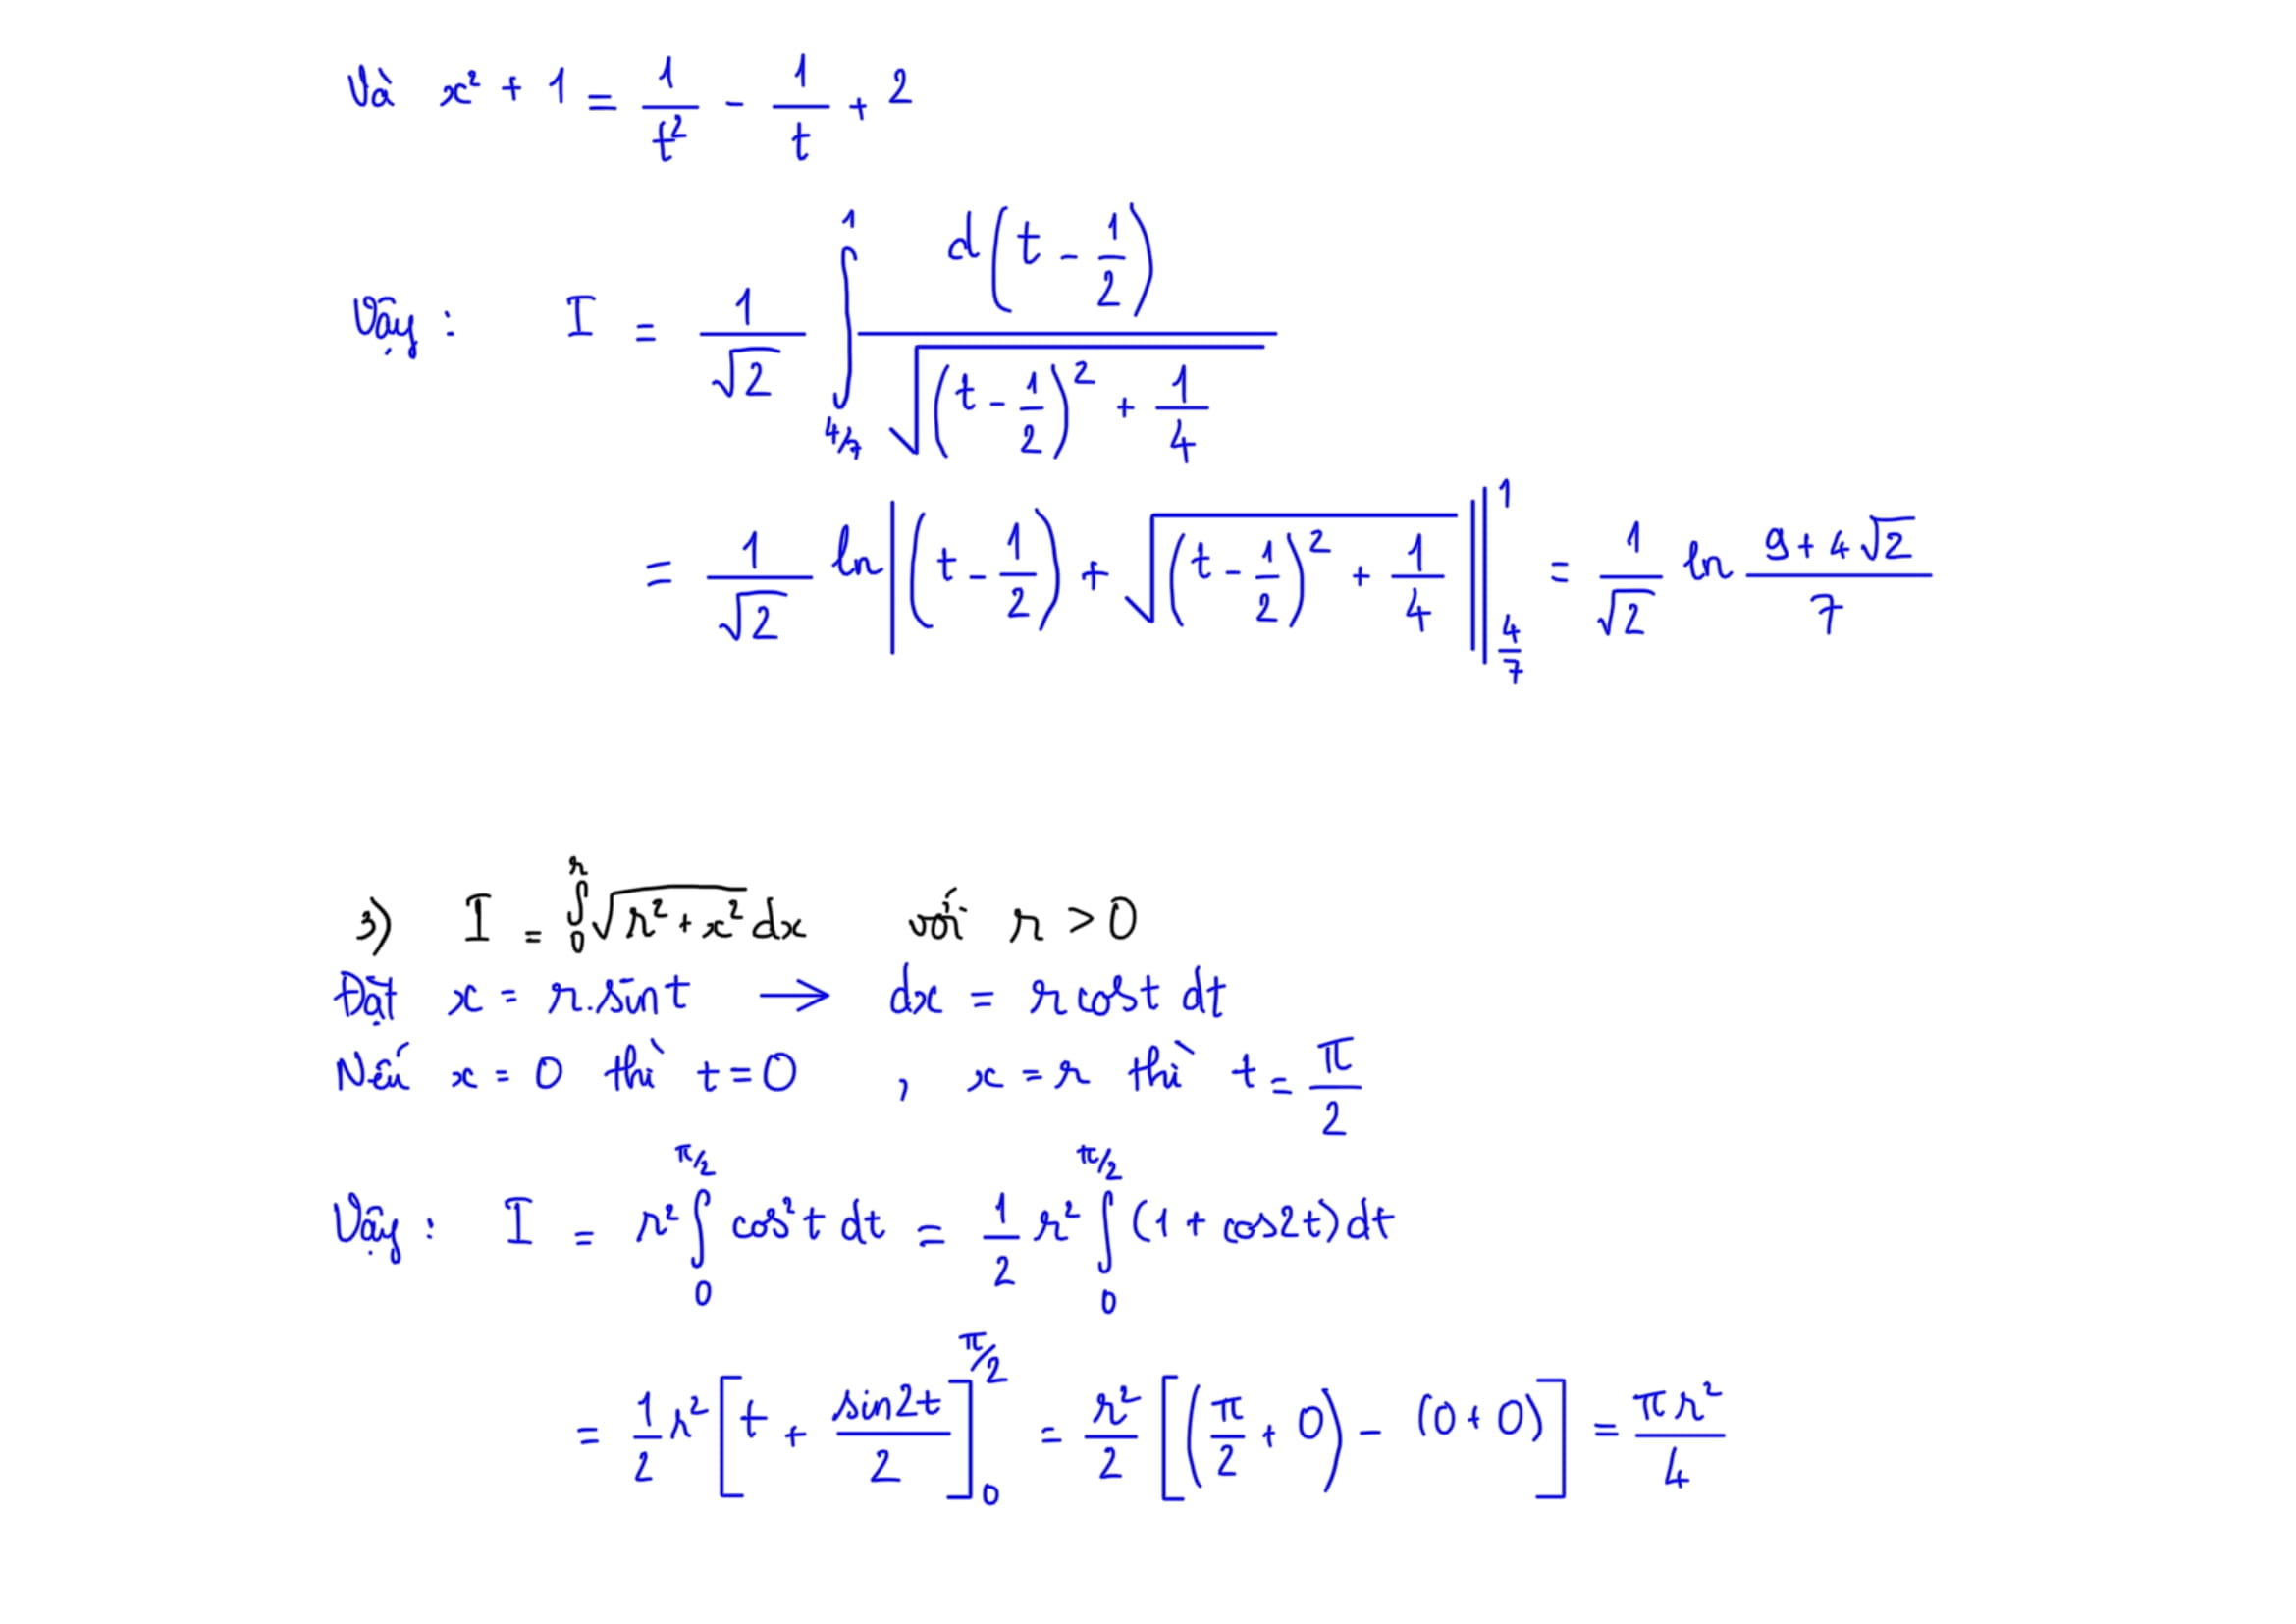 Và x² + 1 = 1/t² - 1/t + 2
Vậy : I = 1/√2 ∫_{4/7}^{1} d(t - 1/2) / √((t - 1/2)² + 1/4)
= 1/√2 ln|(t - 1/2) + √((t - 1/2)² + 1/4)| |_{4/7}^{1} = 1/√2 ln (9 + 4√2)/7
3) I = ∫_{0}^{r} √(r² + x²) dx với r > 0
Đặt x = r.sint → dx = rcost dt
Nếu x = 0 thì t = 0 , x = r thì t = π/2
Vậy : I = r² ∫_{0}^{π/2} cos²t dt = 1/2 r² ∫_{0}^{π/2} (1 + cos2t)dt
= 1/2 r² [t + sin2t/2]_{0}^{π/2} = r²/2 [(π/2 + 0) - (0 + 0)] = πr²/4